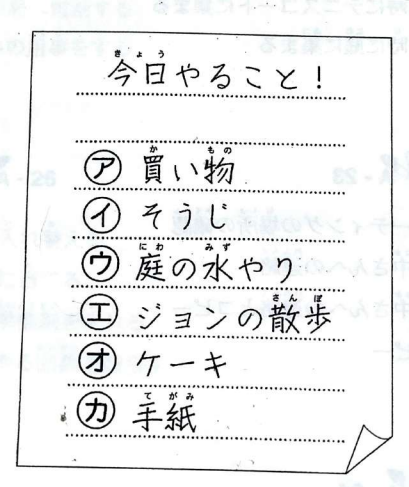 今日やること！
㋐ 買い物
㋑ そうじ
㋒ 庭の水やり
㋓ ジョンの散歩
㋔ ケーキ
㋕ 手紙